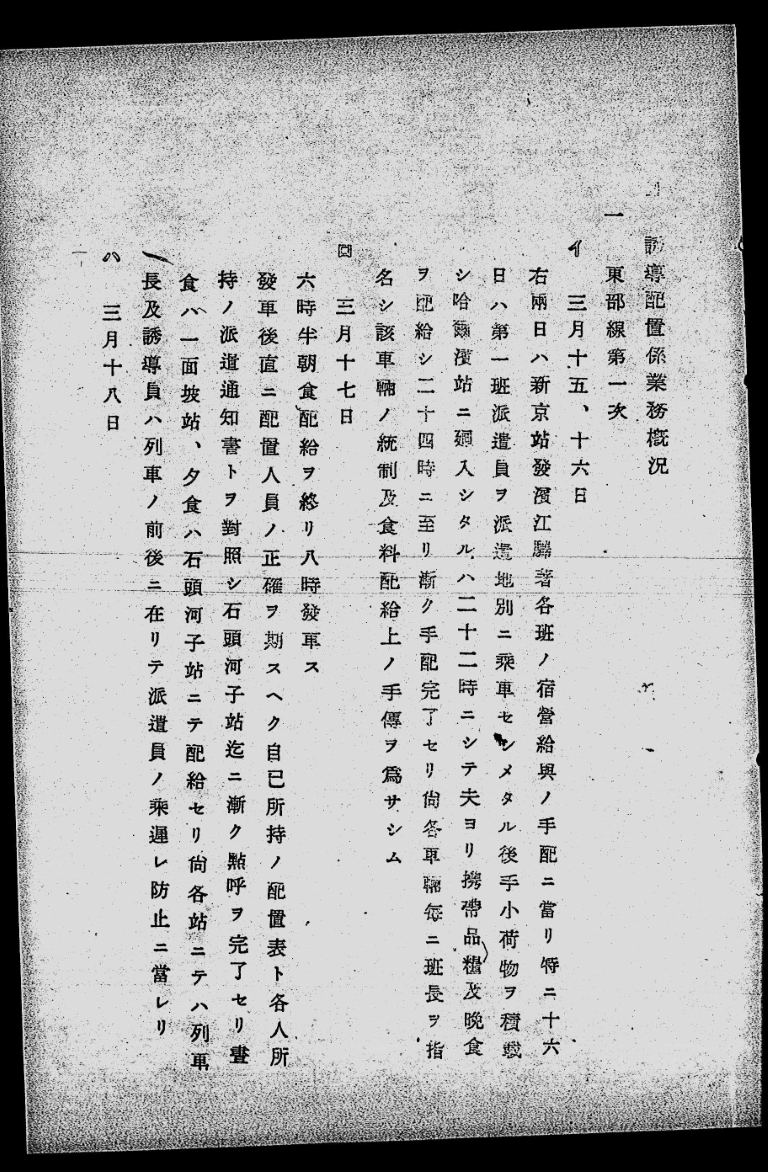 誘導配置係業務概況
一 東部線第一次
イ 三月十五、十六日
右兩日ハ新京站發濱江驛著各班ノ宿營給與ノ手配ニ當リ特ニ十六
日ハ第一班派遣員ヲ派遣地別ニ乘車セシメタル後手小荷物ヲ積載
シ哈爾濱站ニ廻入シタルハ二十二時ニシテ夫ヨリ携帶品糧及晩食
ヲ配給シ二十四時ニ至リ漸ク手配完了セリ尙各車輛每ニ班長ヲ指
名シ該車輛ノ統制及食料配給上ノ手傳ヲ爲サシム
ロ 三月十七日
六時半朝食配給ヲ終リ八時發車ス
發車後直ニ配置人員ノ正確ヲ期スヘク自己所持ノ配置表ト各人所
持ノ派遣通知書トヲ對照シ石頭河子站迄ニ漸ク點呼ヲ完了セリ晝
食ハ一面坡站、夕食ハ石頭河子站ニテ配給セリ尙各站ニテハ列車
長及誘導員ハ列車ノ前後ニ在リテ派遣員ノ乘遲レ防止ニ當レリ
ハ 三月十八日